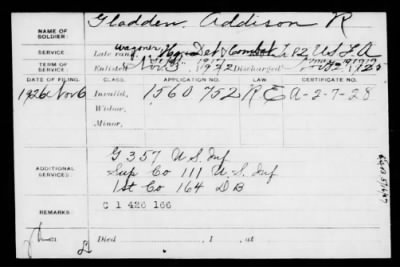 NAME OF SOLDIER: Gladden, Addison R
SERVICE Late rank, Wagoner, Hq. Det & Combat Tr PZ U.S.L.A
TERM OF SERVICE: Enlisted Discharged
DATE OF FILING. CLASS. APPLICATION NO. LAW. CERTIFICATE NO.
1926 Nov 6 Invalid, 1560752 R E A-2-7-28
Widow,
Minor,
ADDITIONAL SERVICES: G 357 U.S. Inf
Sup Co 111 U.S. Inf
1st Co 164 D B
REMARKS: C 1 426 166
Died , 1 , at